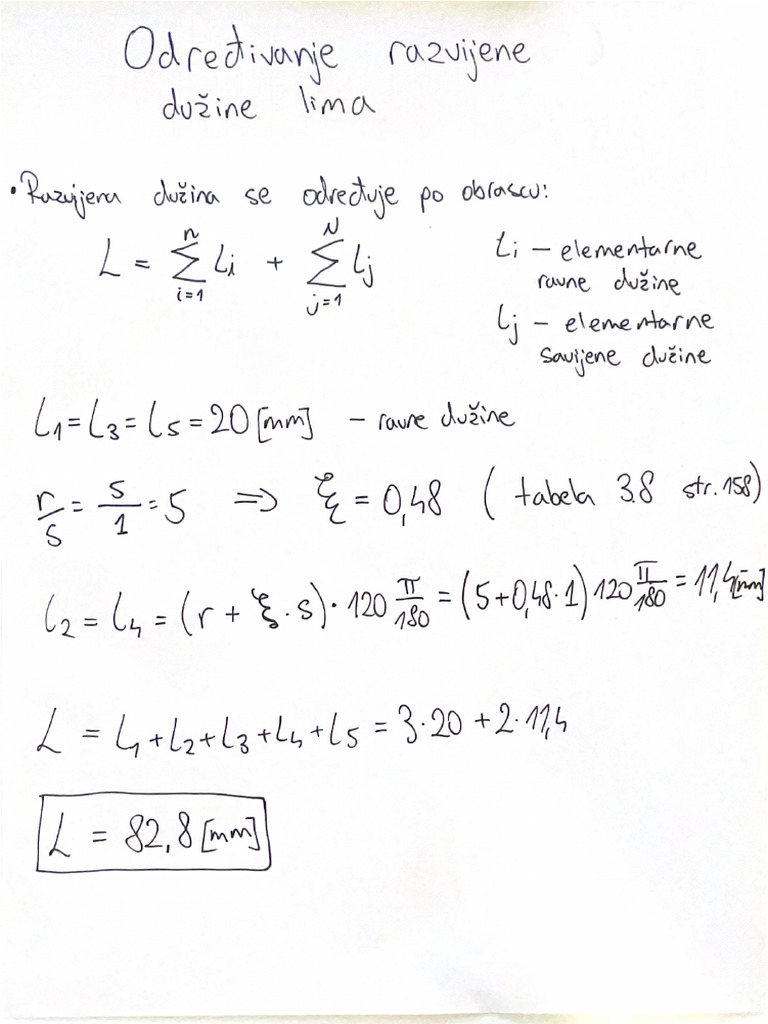 Određivanje razvijene
dužine lima
• Razvijena dužina se određuje po obrascu:
L = \sum_{i=1}^{n} Li + \sum_{j=1}^{N} Lj
Li – elementarne
ravne dužine
Lj – elementarne
savijene dužine
L1 = L3 = L5 = 20 [mm] – ravne dužine
r/s = 5/1 = 5 ⇒ ξ = 0,48 ( tabela 3.8 str. 158)
L2 = L4 = (r + ξ · s) · 120 π/180 = (5+0,48·1) 120 π/180 = 11,4 [mm]
L = L1 + L2 + L3 + L4 + L5 = 3·20 + 2·11,4
L = 82,8 [mm]